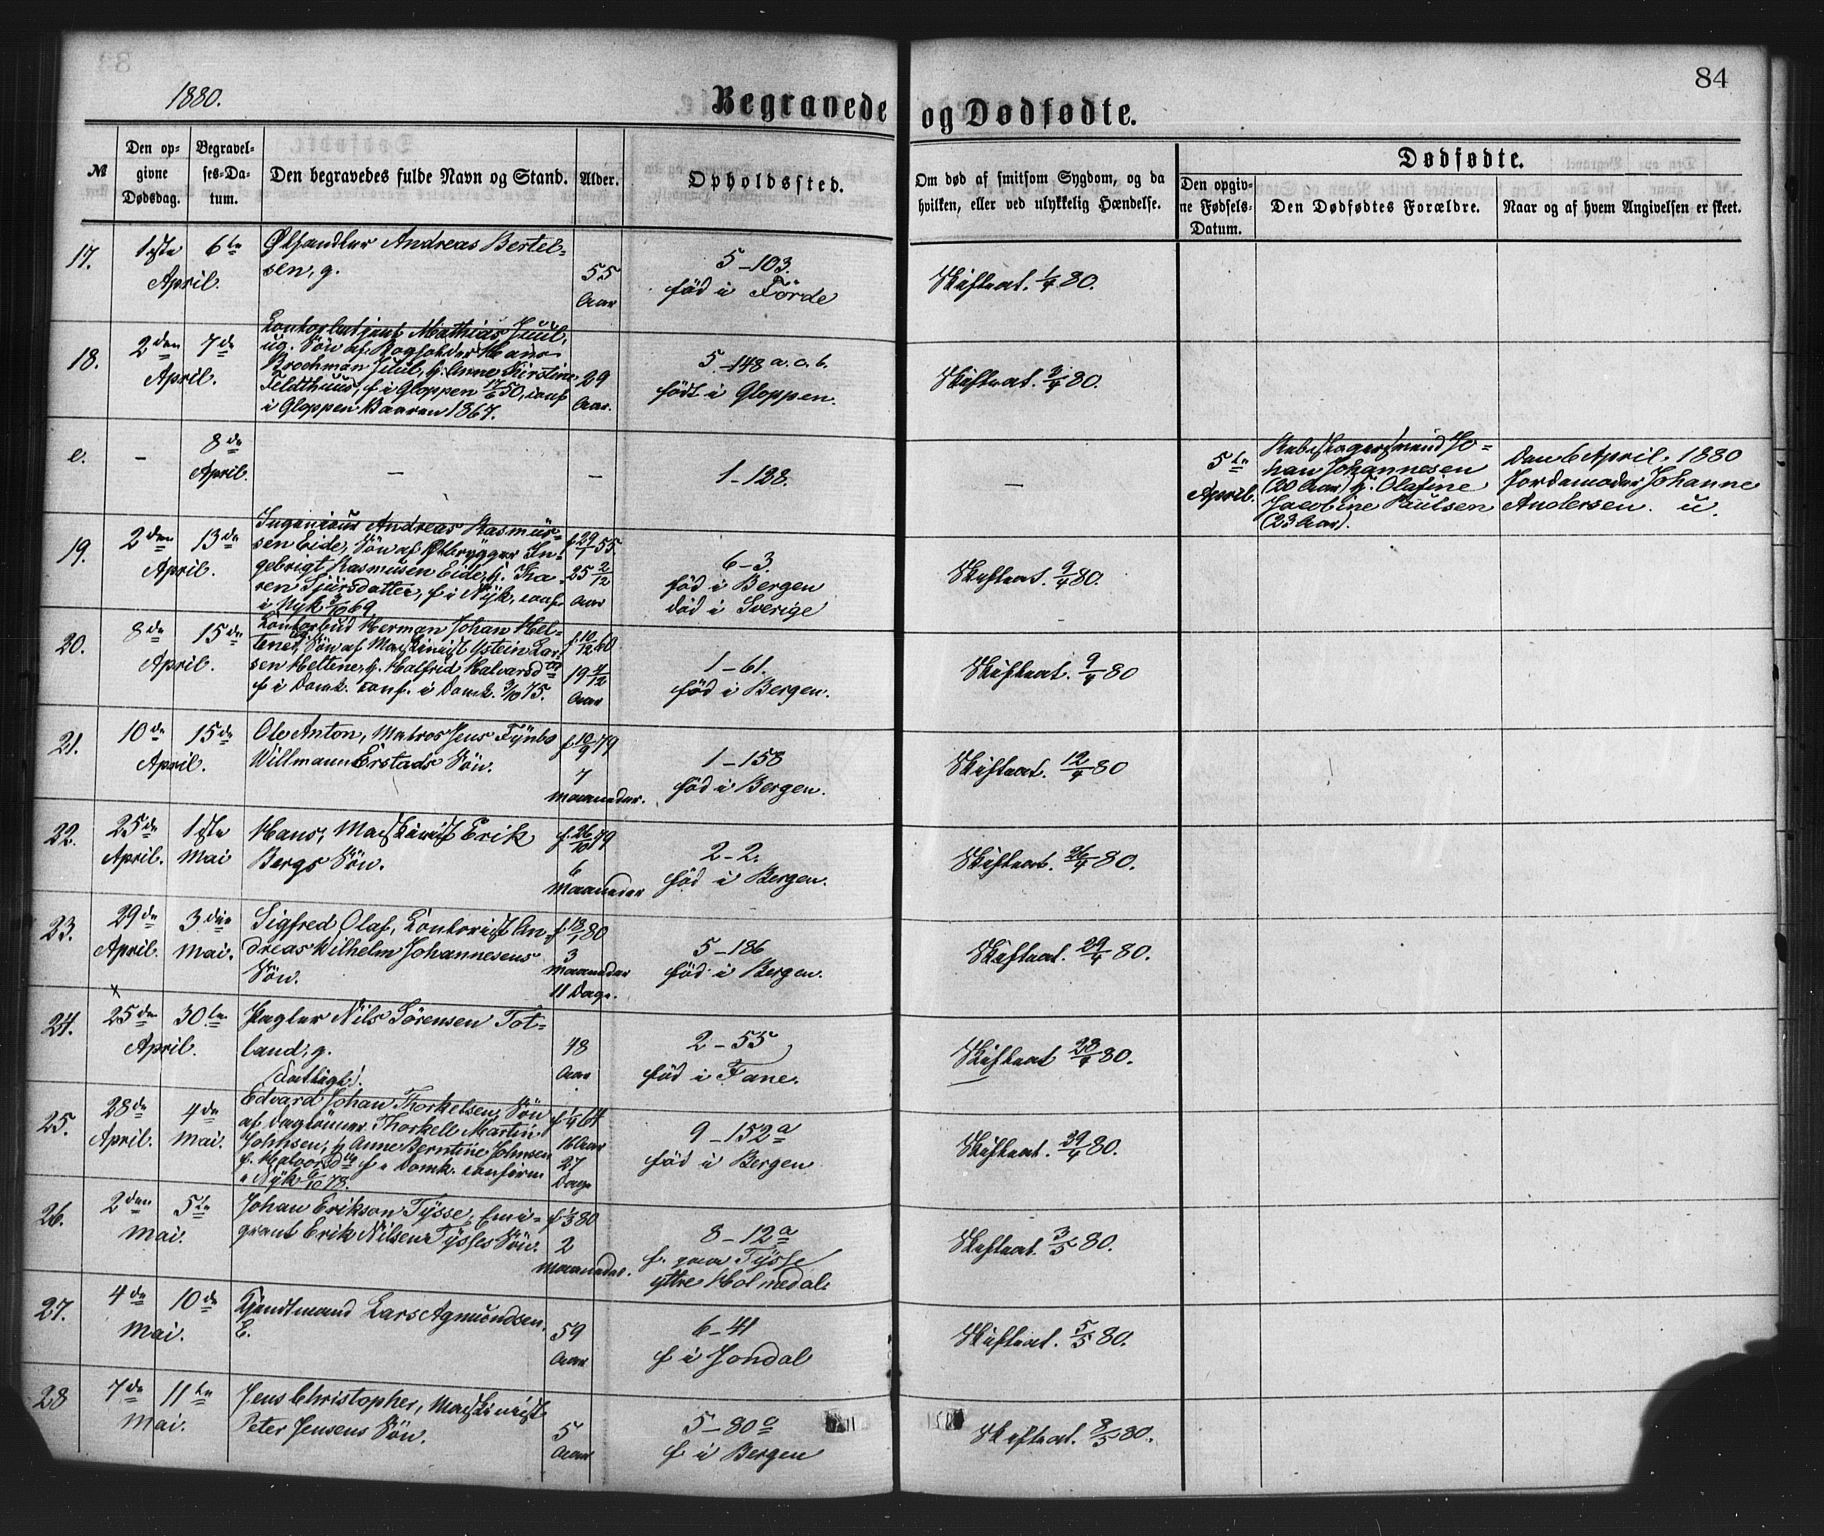 84
1880.
Begravede og Dødfødte.
№
Den opgivne Dødsdag.
Begravelses-Datum.
Den begravedes fulde Navn og Stand.
Alder.
Opholdssted.
Om død af smitsom Sygdom, og da hvilken, eller ved ulykkelig Hændelse.
Dødfødte.
Den opgivne Fødsels-Datum.
Den Dødfødtes Forældre.
Naar og af hvem Angivelsen er skeet.
17.
1ste 6te
April.
Ølhandler Andreas Bertel-
sen, g.
55
Aar
5-103.
fød i Förde
Skifteat. 1/4 80.
18.
2den 7de
April.
Kontorbetjent Mathias Juul,
ug. Søn af Bogholder Hans
Brochman Juul, h. Anne Kirstine
Feldthuus, f i Gloppen 17/6 50, conf
i Gloppen Vaaren 1867.
29
Aar.
5-148 a. o. b.
født i Gloppen.
Skifteat. 3/4 80.
e.
-
8de
April.
-
-
1-128.
-
5te
April.
Johan Johannesen
(20 Aar) h. Olafine
Jacobine Paulsen
(23 Aar).
Den 6 April. 1880
Jordemoder Johanne
Andersen. u.
19.
2den 13de
April.
Ingenieur Andreas Rasmus-
sen Eide, Søn af Ølbrygger In-
gebrigt Rasmusen Eide, h. Ka-
ren Sjursdatter, f i Nyk, conf
i Nyk 3/10 69.
f 29/1 55
25 2/12
Aar
6-3.
fød i Bergen
død i Sverige
Skifteat. 9/4 80.
20.
8de 15de
April.
Kontorbud Herman Johan Hel-
tene, Søn af Maskinist Ystein Lar-
sen Heltene, h. Halfrid Halvorsdtr
f i Domk. conf. i Domk. 3/10 75.
f. 10/12 60
19 4/12
Aar
1-61.
fød i Bergen.
Skifteat. 9/4 80
21.
10de 15de
April.
Ole Anton, Matros Jens Fynbo
Willmann Erstads Søn.
f 10/9 79
7
maaneder.
1-158
fød i Bergen.
Skifteat. 12/4 80
22.
25de 1ste
April. Mai
Hans, Maskinist Erik
Bergs Søn.
f. 26/10 79
6
maaneder
2-2.
fød i Bergen.
Skifteat. 26/4 80.
23.
29de 3die
April. Mai.
Sigfred Olaf, Kontorist An-
dreas Wilhelm Johannesens
Søn.
f 18/1 80
3
maaneder
11 Dage.
5-186
fød i Bergen.
Skifteat. 29/4 80.
x
24.
25de 30te
April.
Nils Sörensen Tot-
land, g.
(Fattigl.).
48
Aar
2-55
fød i Fane.
Skifteat 28/4 80.
25.
28de 4de
April. Mai.
Edvard Johan Thorkelsen, Søn
af Daglønner Thorkell Martin
Johnsen, h Anne Berntine Johnsen
f. Halvorsdtr f i Domk. confirm
i Nyk 6/10 78.
f 1/4 64
16 Aar
27
Dage
9-152 a
fød i Bergen
Skifteat. 29/4 80.
26.
2den 5te
Mai.
Johan Erikson Tysse, Emi-
grant Erik Nilsen Tysses Søn.
f 1/3 80
2
maaneder.
8-12 a
f. paa Tysse
yttre Holmedal
Skifteat. 3/5 80.
27.
4de 10de
Mai.
Lars Agmundsen.
E.
59
Aar
6-41
f i Jondal
Skifteat. 5/5 80.
28
7de 11te
Mai.
Jens Christopher, Maskinist
Peter Jensens Søn.
5
Aar
5-80 a
f i Bergen
Skifteat. 8/5 80.